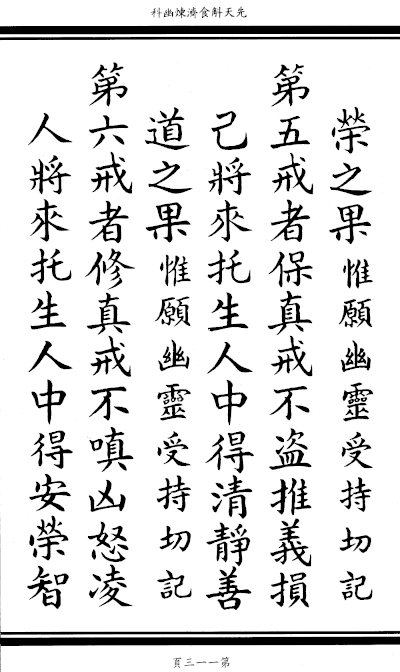 先天斛食濟煉幽科
榮之果惟願幽靈受持切記
第五戒者保真戒不盜推義損
己將來托生人中得清靜善
道之果惟願幽靈受持切記
第六戒者修真戒不嗔凶怒凌
人將來托生人中得安榮智
第一一三頁